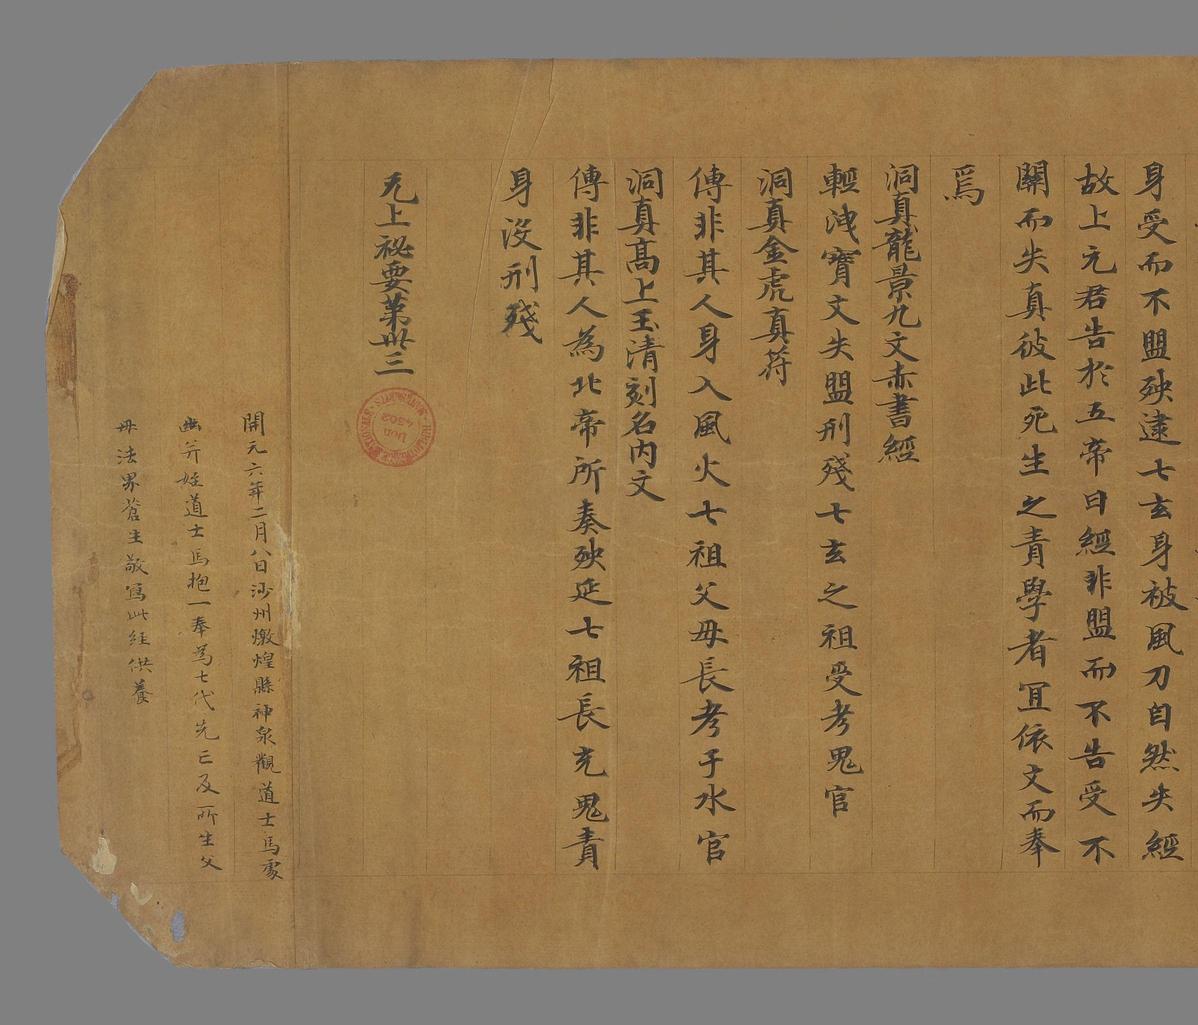 身受而不盟殃逮七玄身被風刀自然失經
故上元君告於五帝曰經非盟而不告受不
關而失真彼此死生之責學者宜依文而奉
焉
洞真龍景九文赤書經
輕洩寶文失盟刑殘七玄之祖受考鬼官
洞真金虎真符
傳非其人身入風火七祖父母長考于水官
洞真高上玉清刻名内文
傳非其人為北帝所奏殃延七祖長充鬼責
身没刑殘
无上祕要第卅三
開元六年二月八日沙州燉煌縣神泉觀道士馬處
幽并姪道士馬抱一奉為七代先亡及所生父
母法界蒼生敬寫此經供養
Don
4502